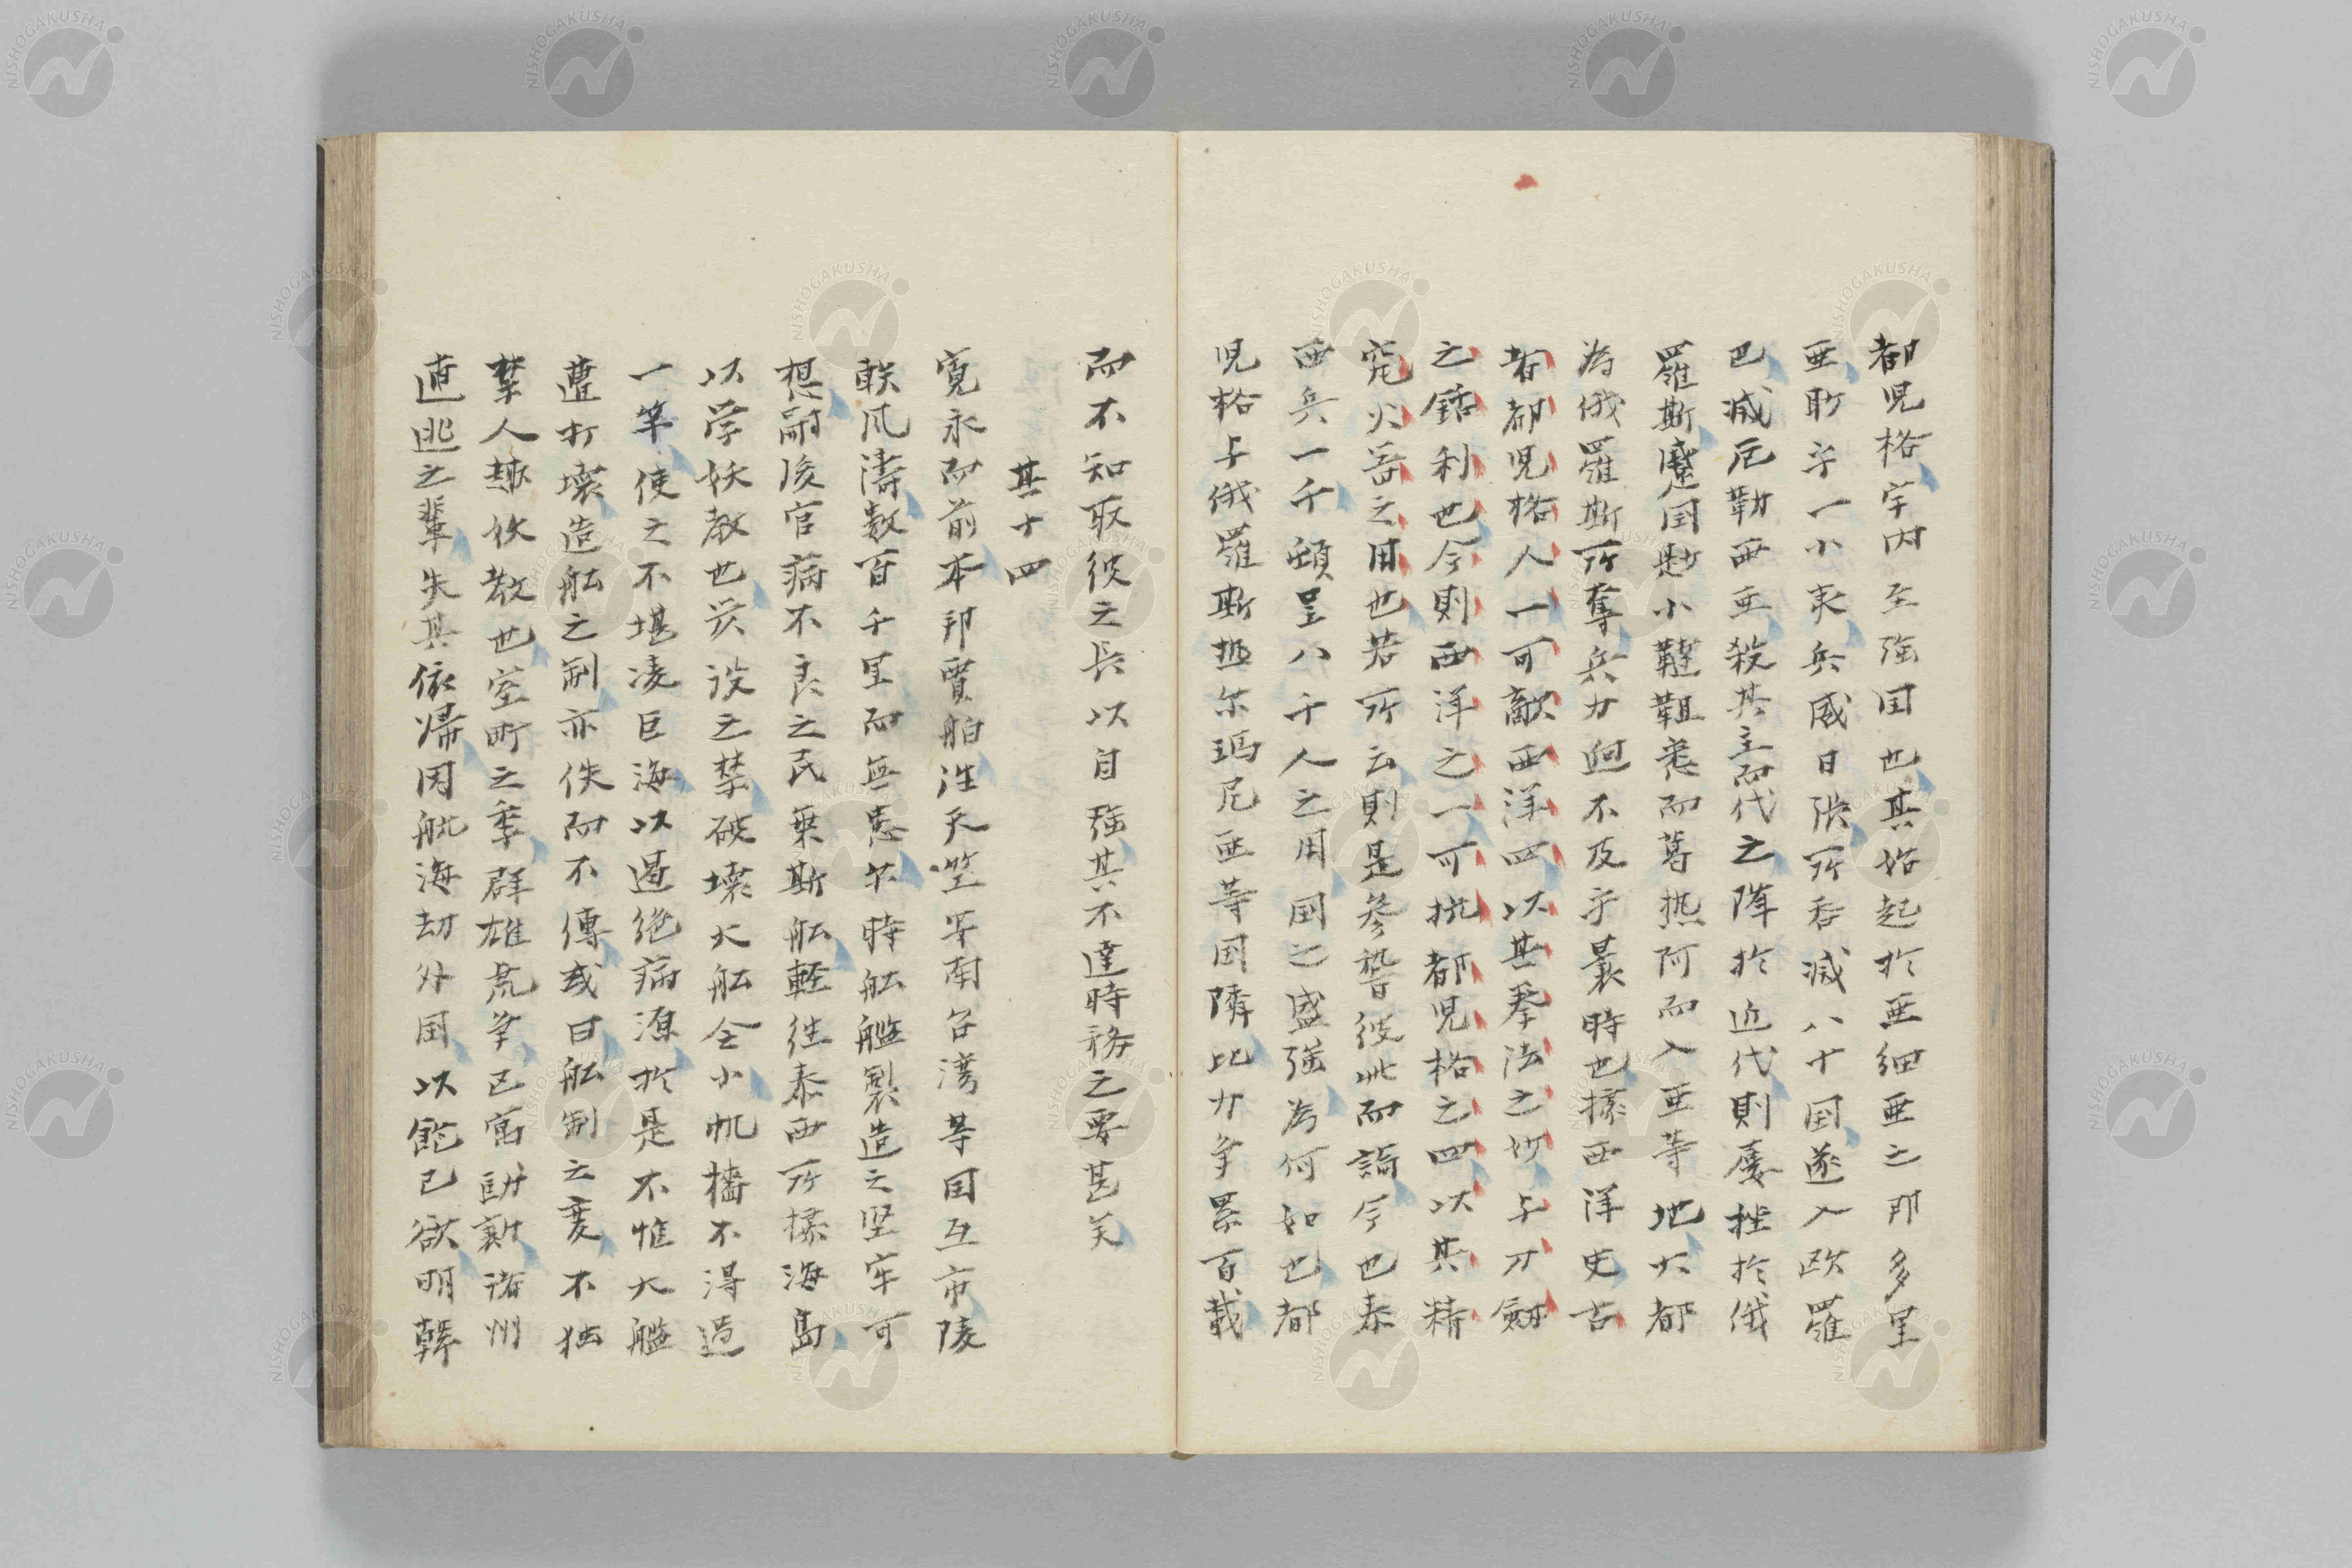 都児格宇内至強国也其始起於亜細亜之那多里
亜耴乎一小夷兵威日張所呑滅八十国遂入欧羅
巴滅厄勒西亜殺其主而代之降於近代則屡挫於俄
羅斯蹙国尠小韃靼喪而葛撚阿而入亜等地大都
為俄羅斯所奪兵力迥不及乎曩時也據西洋史古
者都児格人一可敵西洋四以其拳法之妙与刀剱
之銛利也今則西洋之一可抗都児格之四以其精
究火器之用也若所云則是参誓彼此而論今也泰
西兵一千頓呈八千人之用国之盛強為何如也都
児格与俄羅斯熱尓瑪尼亜等国隣比力争累百載
而不知取彼之長以自強其不達時務之要甚矣
其十四
寛永而前本邦賈舶往天竺安南台湾等国互市陵
駛風濤数百千里而無恙尓時舩艦製造之堅牢可
想嗣後官病不良之民乗斯舩軽往泰西所據海島
以学妖教也爰設之禁破壊大舩令小帆檣不得過
一竿使之不堪凌巨海以遏絶病源於是不惟大艦
遭打壊造舩之制亦佚而不傳或曰舩制之変不独
禁人趣佚教也室町之季群雄虎争已富訓新諸州
逋逃之輩失其依帰因航海劫外国以飽己欲明韓
NISHOGAKUSHA